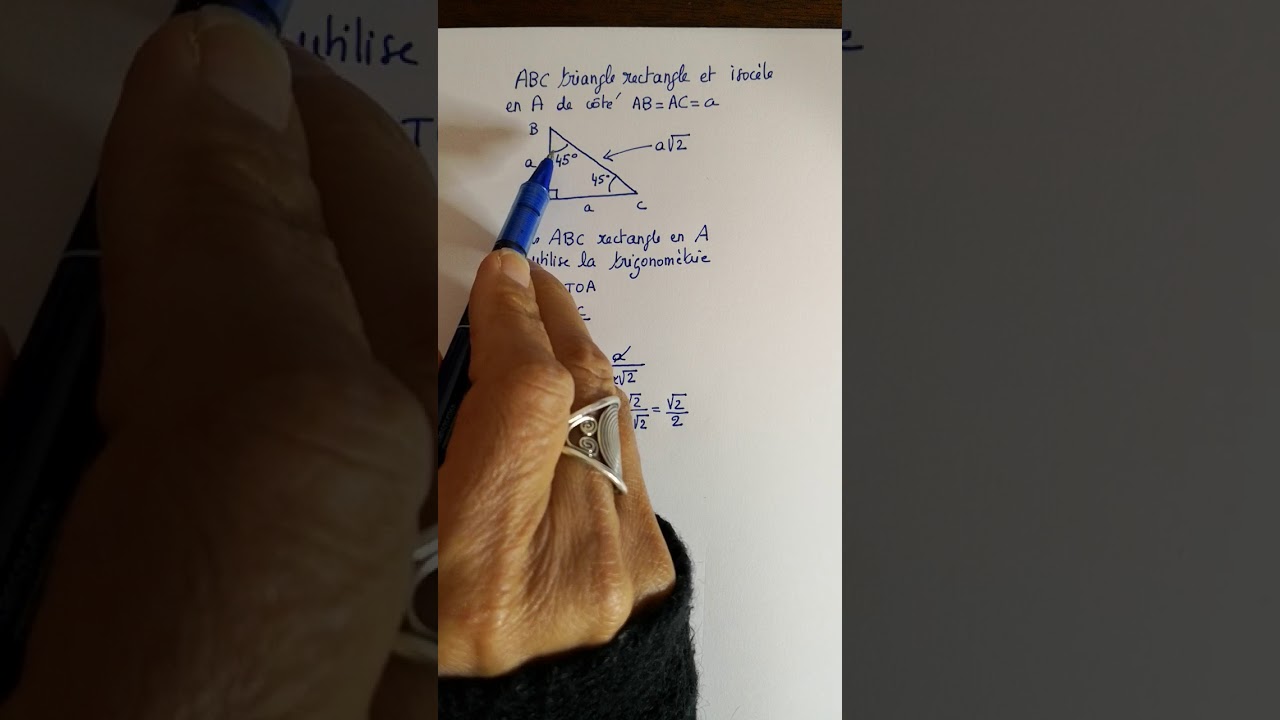 ABC triangle rectangle et isocèle
en A de côté AB = AC = a
B
a√2
a 45°
45°
a C
ABC rectangle en A
utilise la trigonométrie
TOA
a
√2
√2/√2 = √2/2